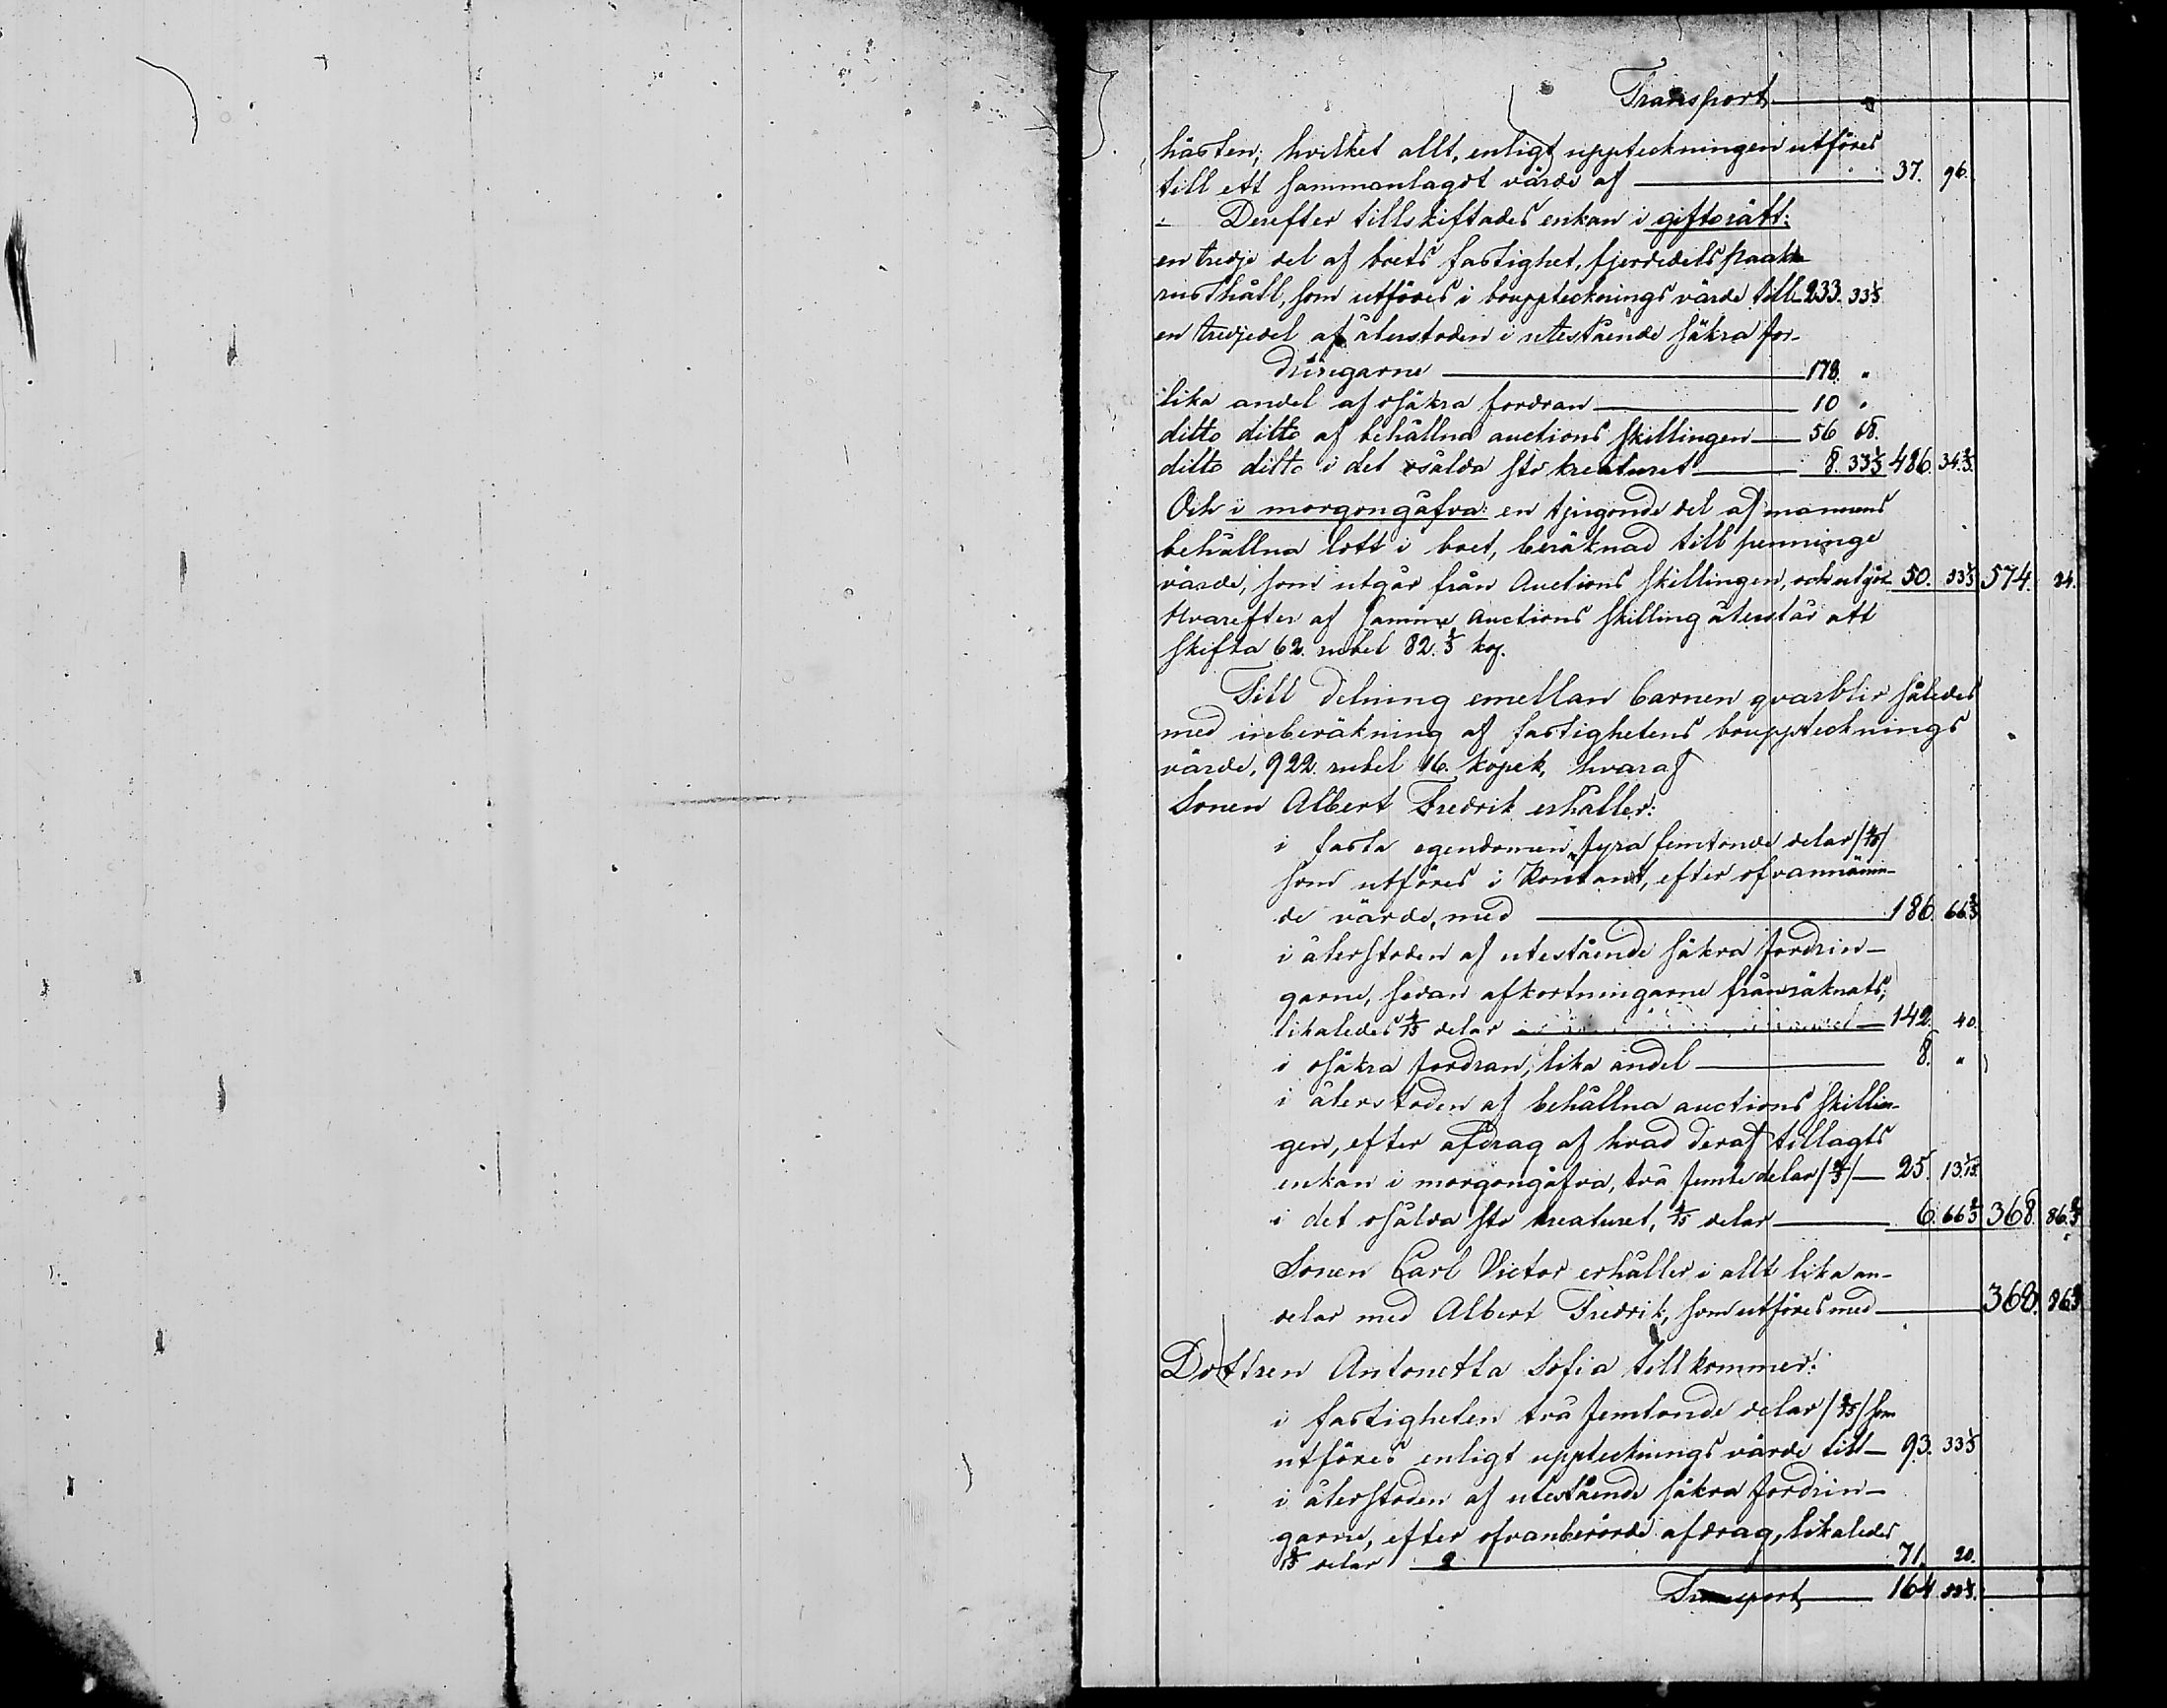 Transport
hästen; hvilket allt, enligt uppteckningen utföres
till ett sammanlagdt värde af — 37. 96.
Derefter tillskiftades enkan i giftorätt:
en tredje del af boets fastighet, fjerdedels Paakka
rusthåll, som utföres i bouppteckningsvärde till 233. 33⅓
en tredjedel af återstoden i utestående säkra for-
dringarne — 178. "
lika andel af osäkra fordran — 10 "
ditto ditto af behållna auctions skillingen — 56 68.
ditto ditto i det osålda sto kreaturet — 8. 33⅓ 486. 34.⅔
Och i morgongåfva: en tjugonde del af mannens
behållna lott i boet, beräknad till penninge
värde, som utgår från Auctions skillingen, och utgör 50. 53⅓ 574. 84.
Hvarefter af samma Auctions skilling återstår att
skifta 62. rubel 82.⅔ kop.
Till delning emellan barnen qvarblir således
med inberäkning af fastighetens bouppteknings
värde, 922. rubel 16. kopek, hvaraf
Sonen Albert Fredrik erhåller:
i fasta egendomen, fyra femtonde delar /4/15/
som utföres i Kontant, efter ofvannämn-
de värde, med — 186. 66⅔
i återstoden af utestående säkra fordrin-
garne, sedan afkortningarne frånräknats,
likaledes 4/15 delar — 142. 40.
i osäkra fordran, lika andel — 8. "
i återstoden af behållna auctions skillin-
gen, efter afdrag af hvad deraf tillagts
enkan i morgongåfva, två femtedelar /2/5/ — 25. 13.1/15
i det osålda sto kreaturet, 4/15 delar — 6. 66⅔ 368. 86.⅖
Sonen Carl Victor erhåller i allt lika an-
delar med Albert Fredrik, som utföres med — 368. 86⅖
Dottren Antonetta Sofia tillkommer:
i fastigheten två femtonde delar /2/15/ som
utföres enligt uppteknings värde till — 93. 33⅓
i återstoden af utestående säkra fordrin-
garne, efter ofvanberörde afdrag, likaledes
2/15 delar — 71. 20.
Transport — 164. 53⅓.